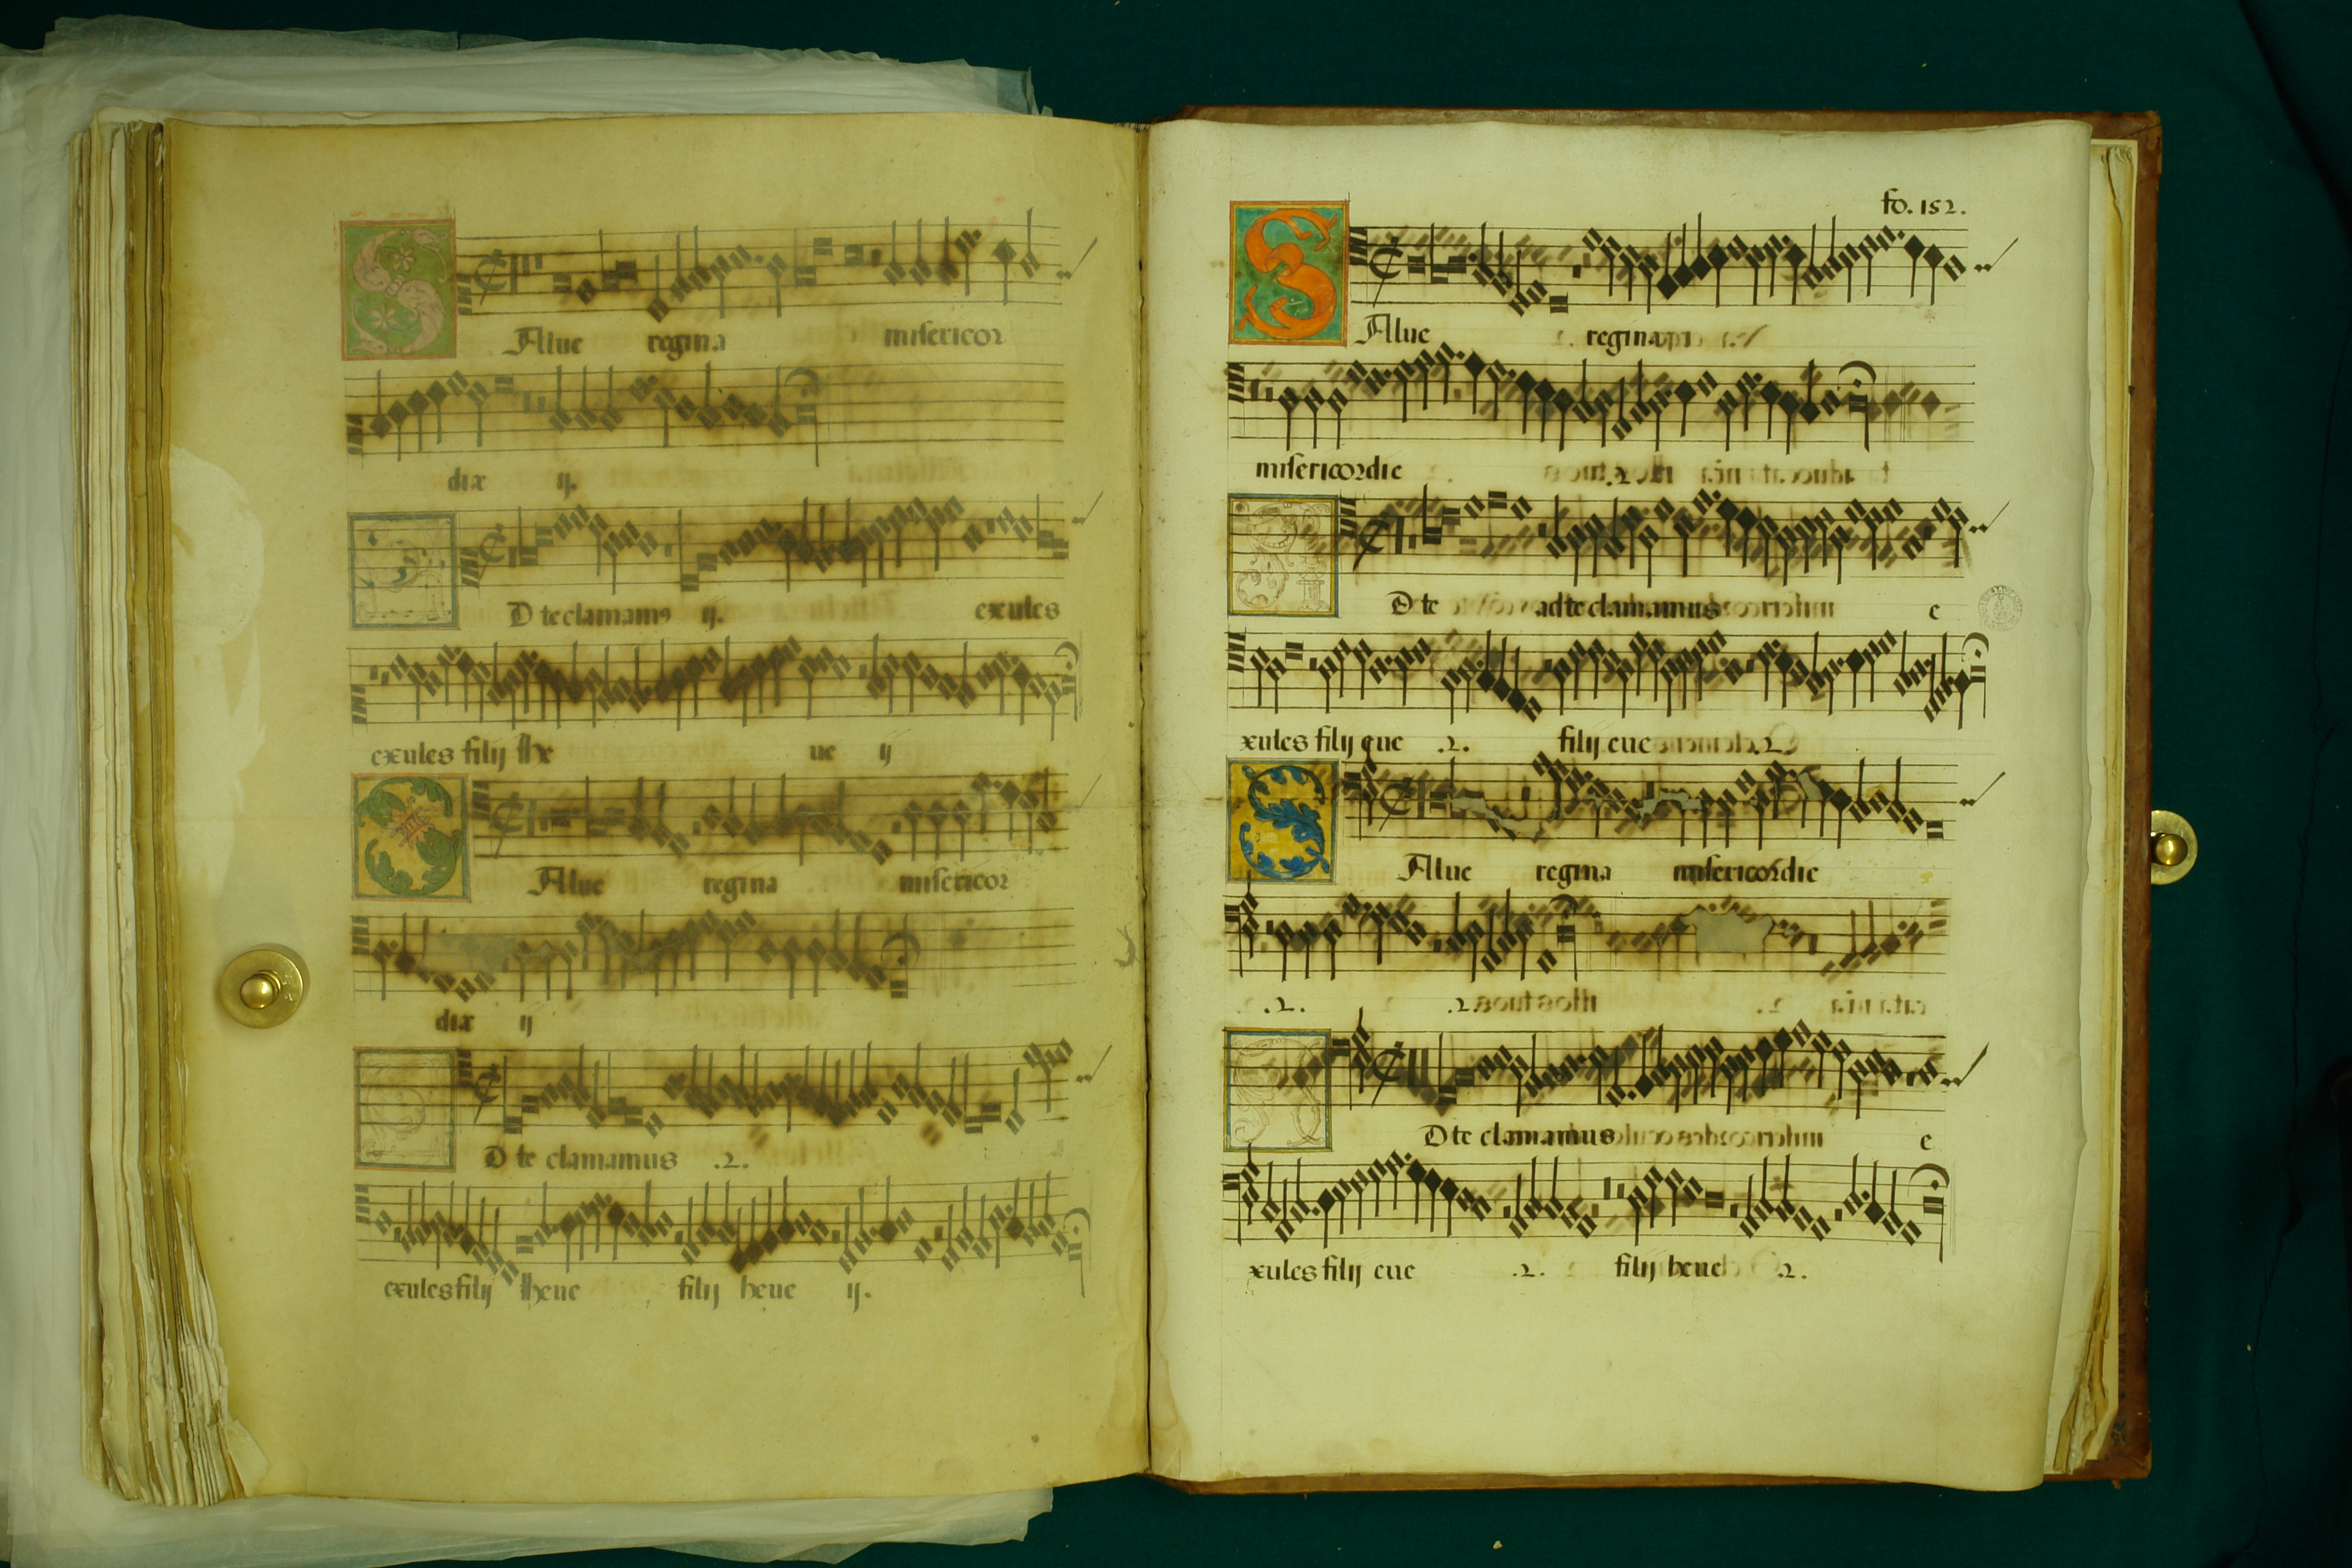 SAlue regina misericor
dix ij.
D te clamams ij. exules
exules filij he ue ij
SAlue regina misericor
dix ij
D te clamamus .2.
exules filij heue filij heue ij.
fo. 152.
SAlue regina
misericordie
D te ad te clamamus e
xules filij eue .2. filij eue .2.
SAlue regina misericordie
.2. .2.
D te clamamus e
xules filij eue .2. filij heue .2.